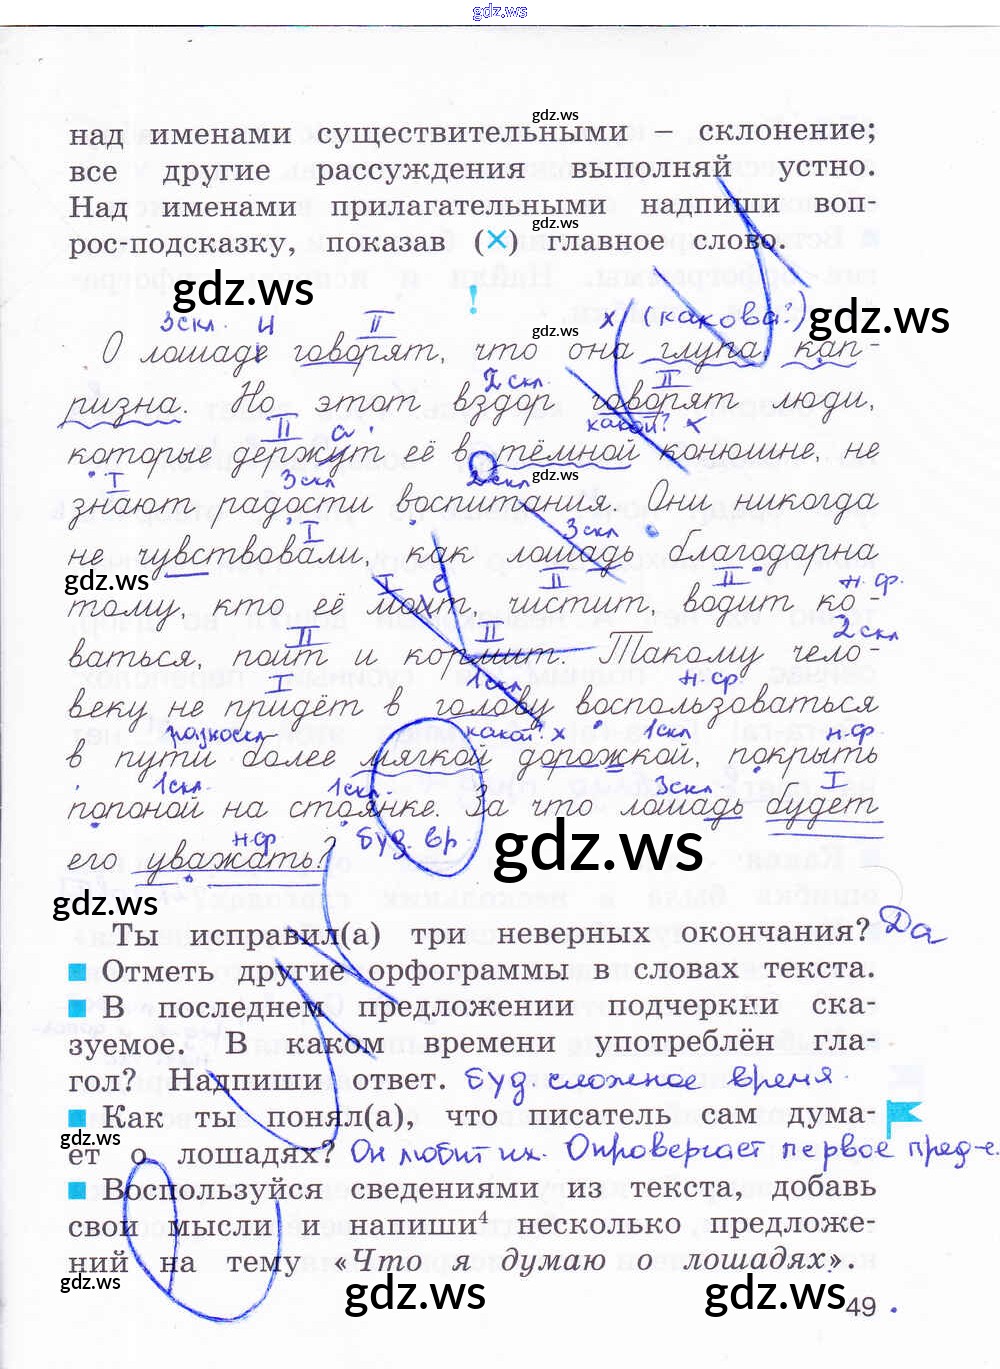 gdz.ws
gdz.ws
над именами существительными – склонение;
все другие рассуждения выполняй устно.
gdz.ws
Над именами прилагательными надпиши воп-
рос-подсказку, показав (×) главное слово.
gdz.ws
!
3скл. и II х (какова?) gdz.ws
gdz.ws
О лошаде говорят, что она глупа, кап-
2скл. II
ризна. Но этот вздор говорят люди,
II а какой? х
которые держут её в тёмной конюшине, не
I 3скл 2скл gdz.ws
знают радости воспитания. Они никогда
I 3скл
не чувствовали, как лошадь благодарна
gdz.ws I е II II н.ф.
тому, кто её моит, чистит, водит ко-
II II 2скл
ваться, поит и кормит. Такому чело-
I 1скл н.ф.
веку не придёт в голову воспользоваться
разноскл. какой? х 1скл н.ф
в пути более мягкой дорожкой, покрыть
1скл. 1скл. 3скл I
попоной на стоянке. За что лошадь будет
н.ф буд. вр. gdz.ws
его уважать?
gdz.ws gdz.ws
Ты исправил(а) три неверных окончания? Да
Отметь другие орфограммы в словах текста.
В последнем предложении подчеркни ска-
зуемое. В каком времени употреблён гла-
гол? Надпиши ответ. буд. сложное время.
Как ты понял(а), что писатель сам дума-
gdz.ws
ет о лошадях? Он любит их. Опровергает первое пред-е.
gdz.ws
Воспользуйся сведениями из текста, добавь
свои мысли и напиши⁴ несколько предложе-
ний на тему «Что я думаю о лошадях».
gdz.ws gdz.ws gdz.ws
49